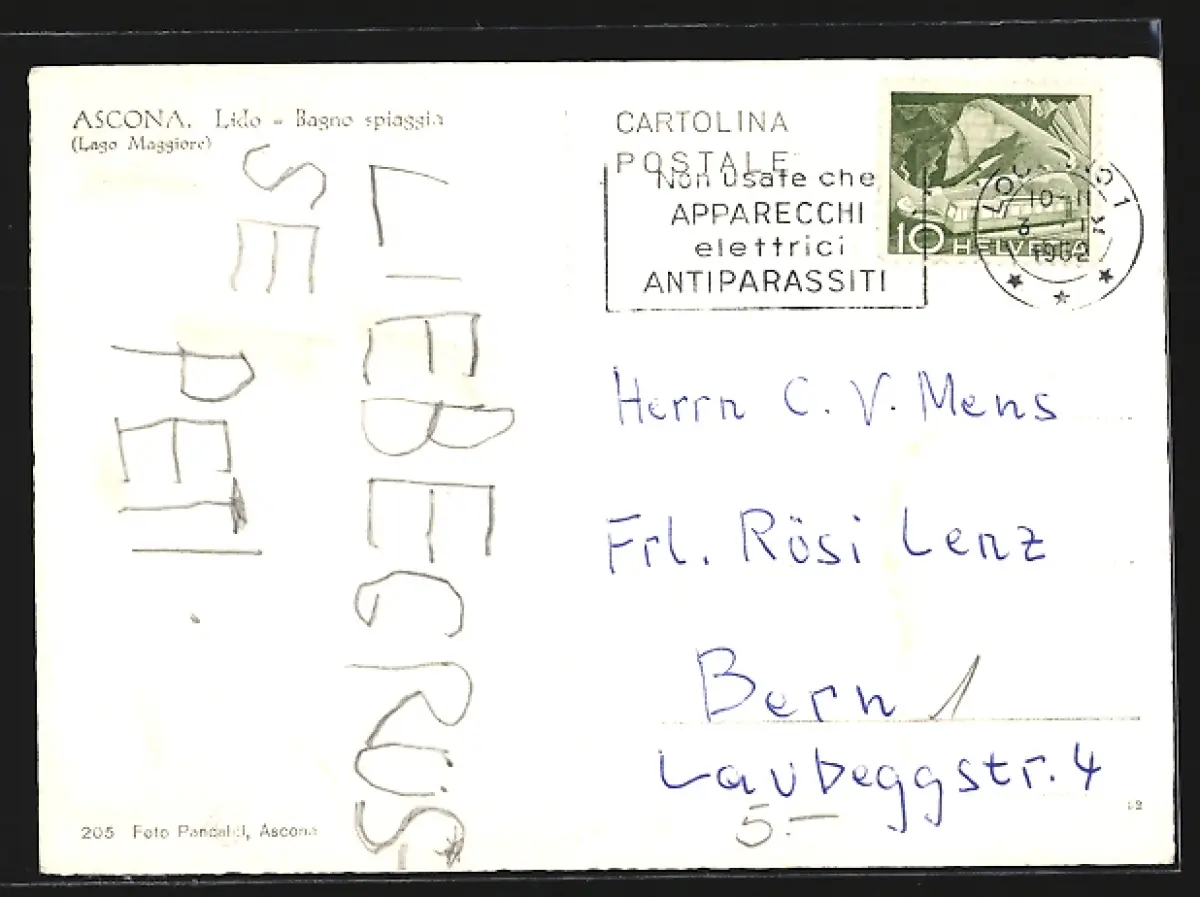 ASCONA. Lido - Bagno spiaggia
(Lago Maggiore)
LIEBE GRÜS
SE
PETI
205 Foto Pancaldi, Ascona
CARTOLINA
POSTALE
Non usate che
APPARECCHI
elettrici
ANTIPARASSITI
10 HELVETIA
LOCARNO 1
10-11
1962
Herrn C. V. Mens
Frl. Rösi Lenz
Bern 1
Laubeggstr. 4
5.—